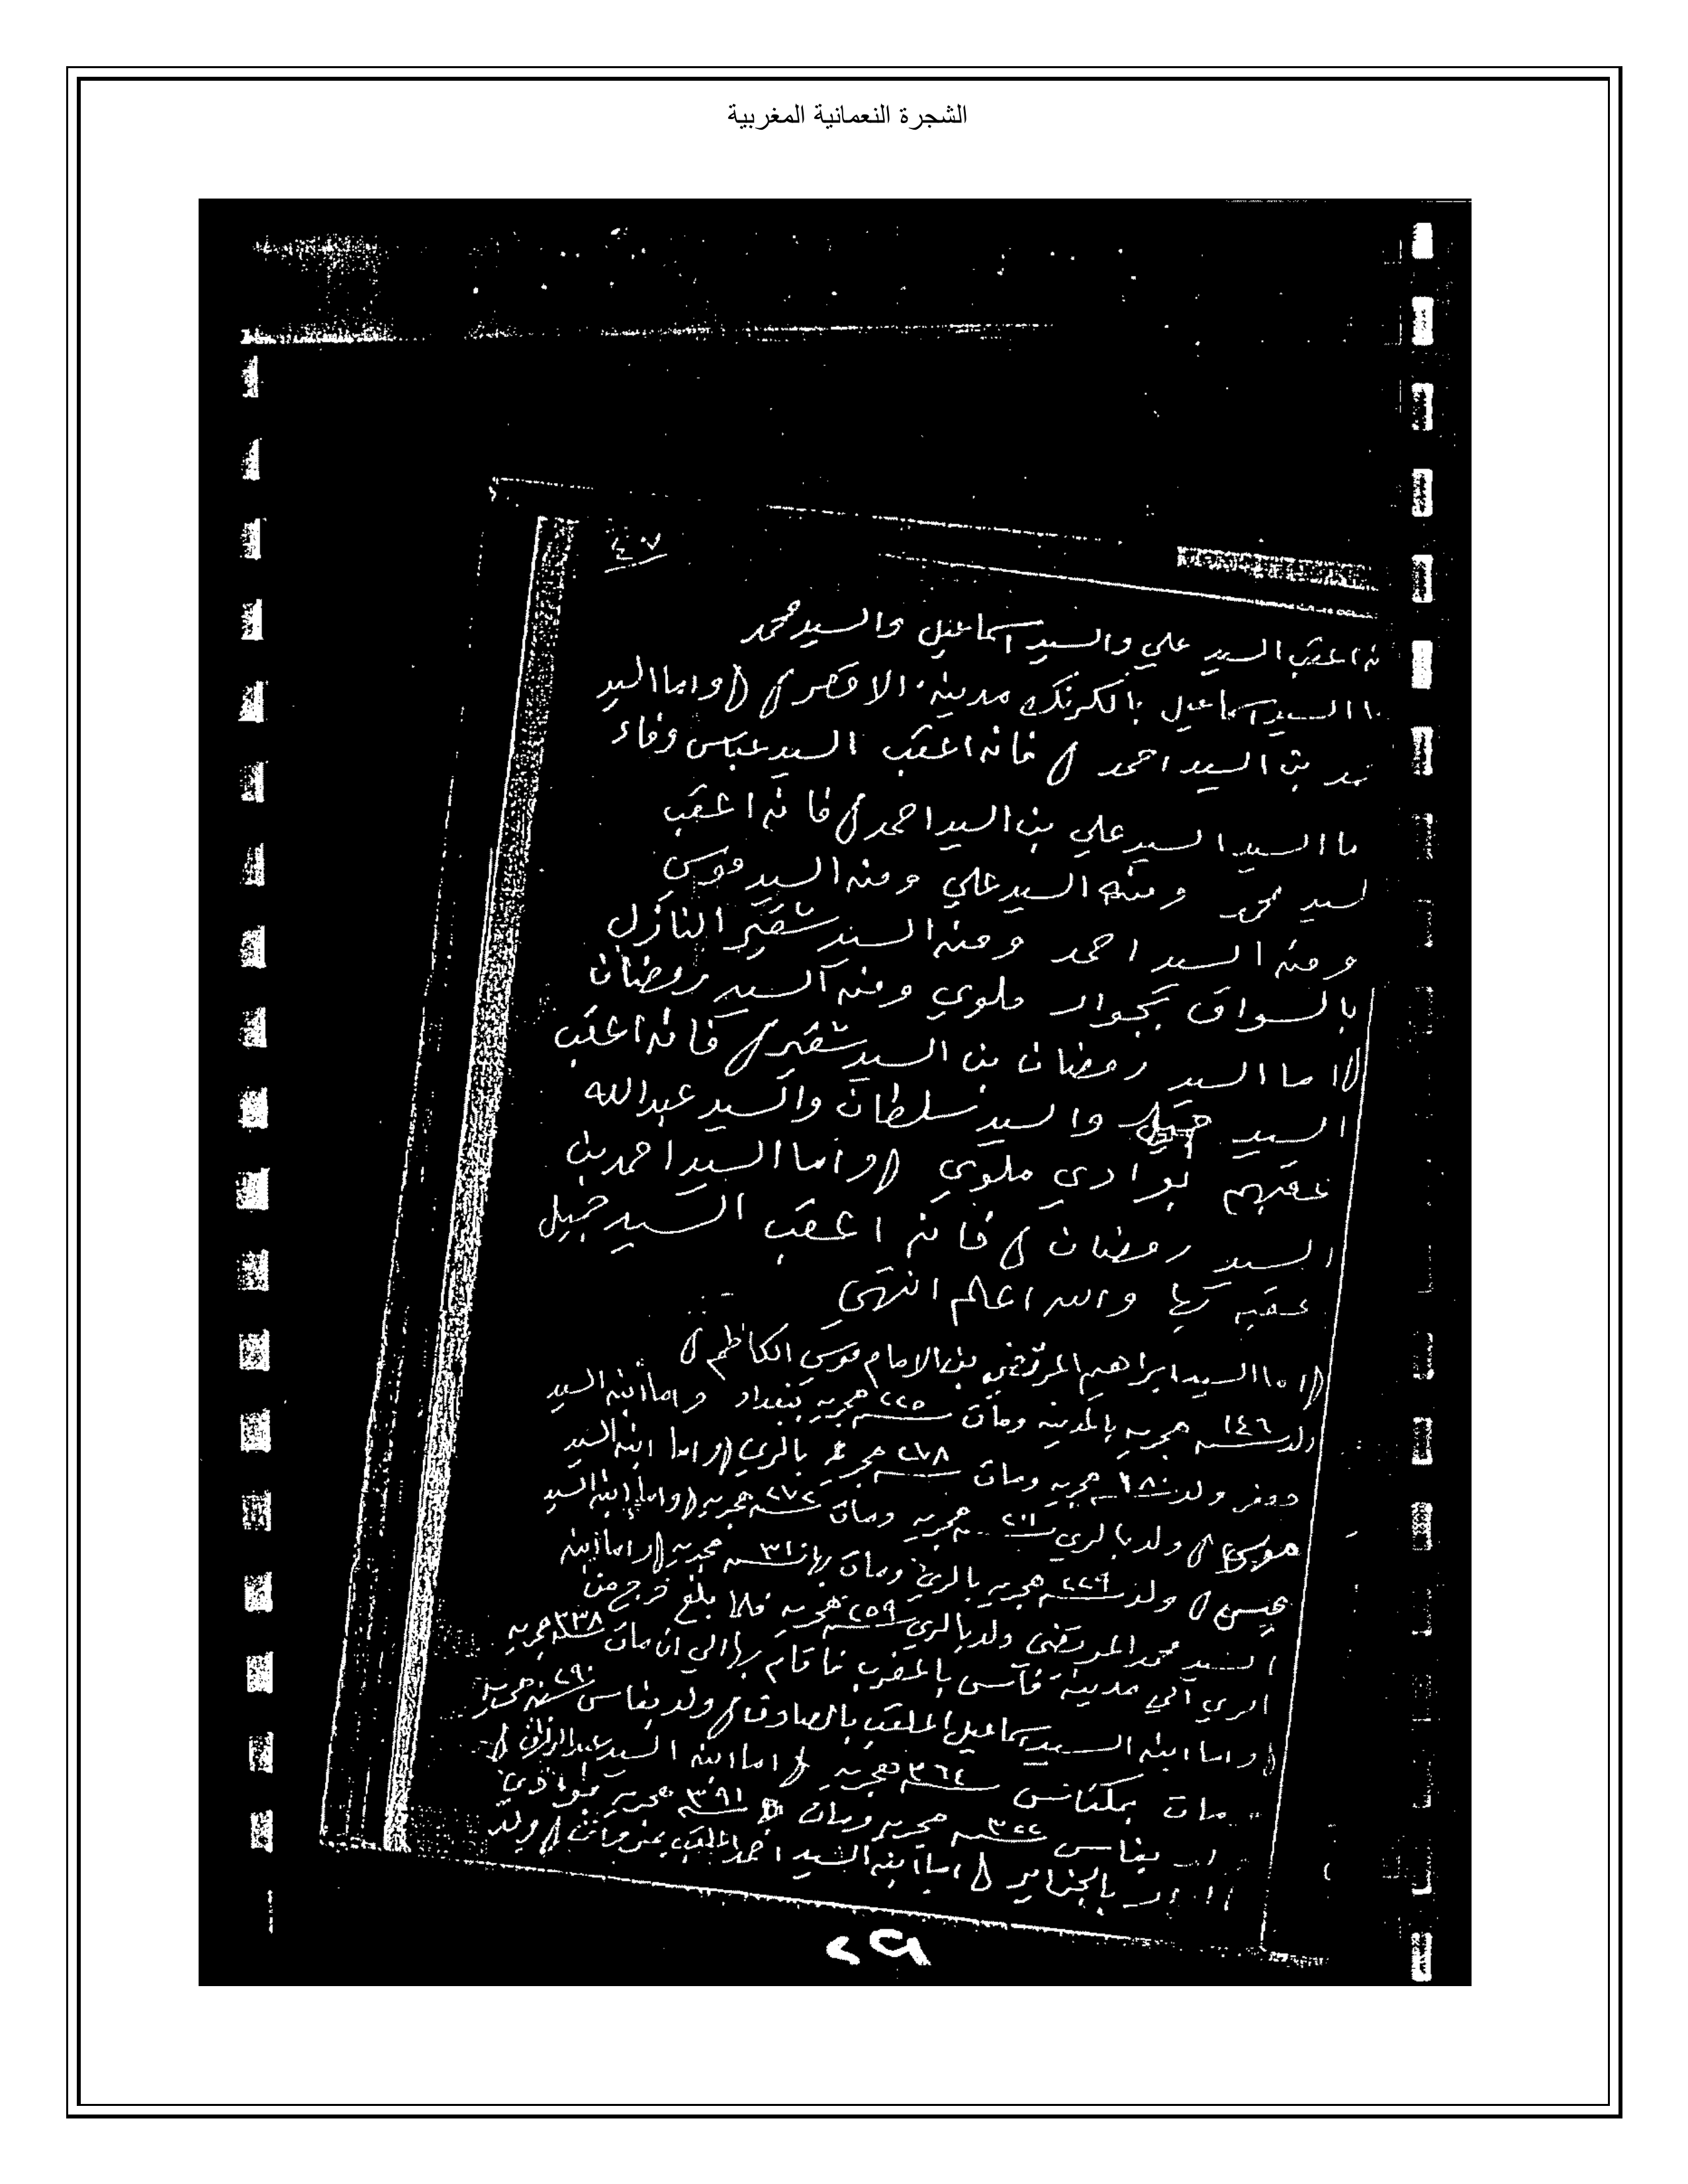 الشجرة النعمانية المغربية
٤٠٧
نه اعقب السيد علي والسيد اسماعيل والسيد محمد
ا السيد اسماعيل بالكرنك مدينة الاقصر // واما السيد
بن السيد احمد / فانه اعقب السيد عباس وفاء
ما السيد السيد علي بن السيد احمد / فانه اعقب
لسيد محمد ومنه السيد علي ومنه السيد موسى
ومنه السيد احمد ومنه السيد شقير النازل
بالسواق بجوار ملوي ومنه السيد رمضان
/ اما السيد رمضان بن السيد شقير / فانه اعقب
السيد والسيد سلطان والسيد عبدالله
عقبهم بوادي ملوي / واما السيد احمد بن
السيد رمضان / فانه اعقب السيد جميل
عقبه بها والله اعلم انتهي
/ اما السيد ابراهيم المرتضي بن الامام موسي الكاظم /
ولد سنة ١٤٦ هجريه بالمدينه ومات سنة ٢٢٥ هجريه ببغداد واما ابنه السيد
ولد هجريه ومات سنة ٢٧٨ بالري / واما ابنه السيد
موسي / ولد بالري سنة ٢٠١ هجريه ومات سنة ٢٧٢ هجريه / واما ابنه السيد
عيسي / ولد سنة ٢٢٩ هجريه بالري ومات بها سنة ٣١ هجريه / واما ابنه
السيد محمد المرتضي ولد بالري سنة ٢٥٩ هجريه فلما بلغ خرج من
الري الي مدينة فاس بالمغرب فاقام بها الي ان مات سنة ٣٣٨ هجريه
/ واما ابنه السيد اسماعيل الملقب بالصادق / ولد بفاس سنة ٢٩٠
مات بمكناس سنة ٣٦٤ هجريه / اما ابنه السيد عبدالرزاق /
بفاس سنة ٣٢٢ هجريه ومات سنة ٣٩١ هجريه بوادي
بالجزاير / اما ابنه السيد احمد الملقب / ولد
٢٩